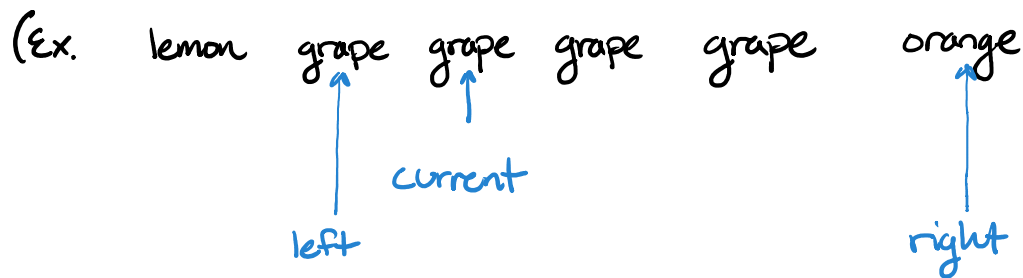 (Ex. lemon grape grape grape grape orange
current
left right